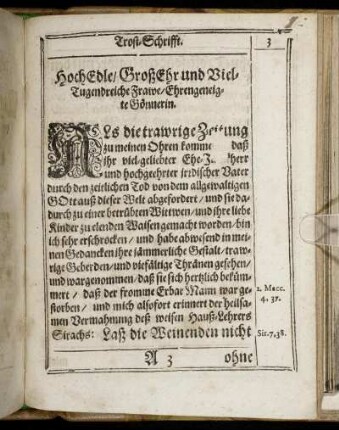 Trost-Schrifft. 3
HochEdle/ GroßEhr und Viel-
Tugendreiche Frawe/ Ehrengeneig-
te Gönnerin.
ALs die trawrige Zeitung
zu meinen Ohren komme daß
ihr viel-geliebter Ehe-Herr
und hochgeehrter irdischer Vater
durch den zeitlichen Tod von dem allgewaltigen
GOtt auß dieser Welt abgefordert/ und sie da-
durch zu einer betrübten Wittwen/ und ihre liebe
Kinder zu elenden Waisen gemacht worden/ bin
ich sehr erschrocken/ und habe abwesend in mei-
nen Gedancken ihre jämmerliche Gestalt/ traw-
rige Geberden/ und vielfältige Thränen gesehen/
und wargenommen/ daß sie sich hertzlich beküm-
mert/ daß der fromme Erbar Mann war ge-
storben/ und mich alsofort erinnert der heilsa-
men Vermahnung deß weisen Hauß-Lehrers
Sirachs: Laß die Weinenden nicht
2. Macc.
4. 37.
Sir. 7, 38.
A 3 ohne